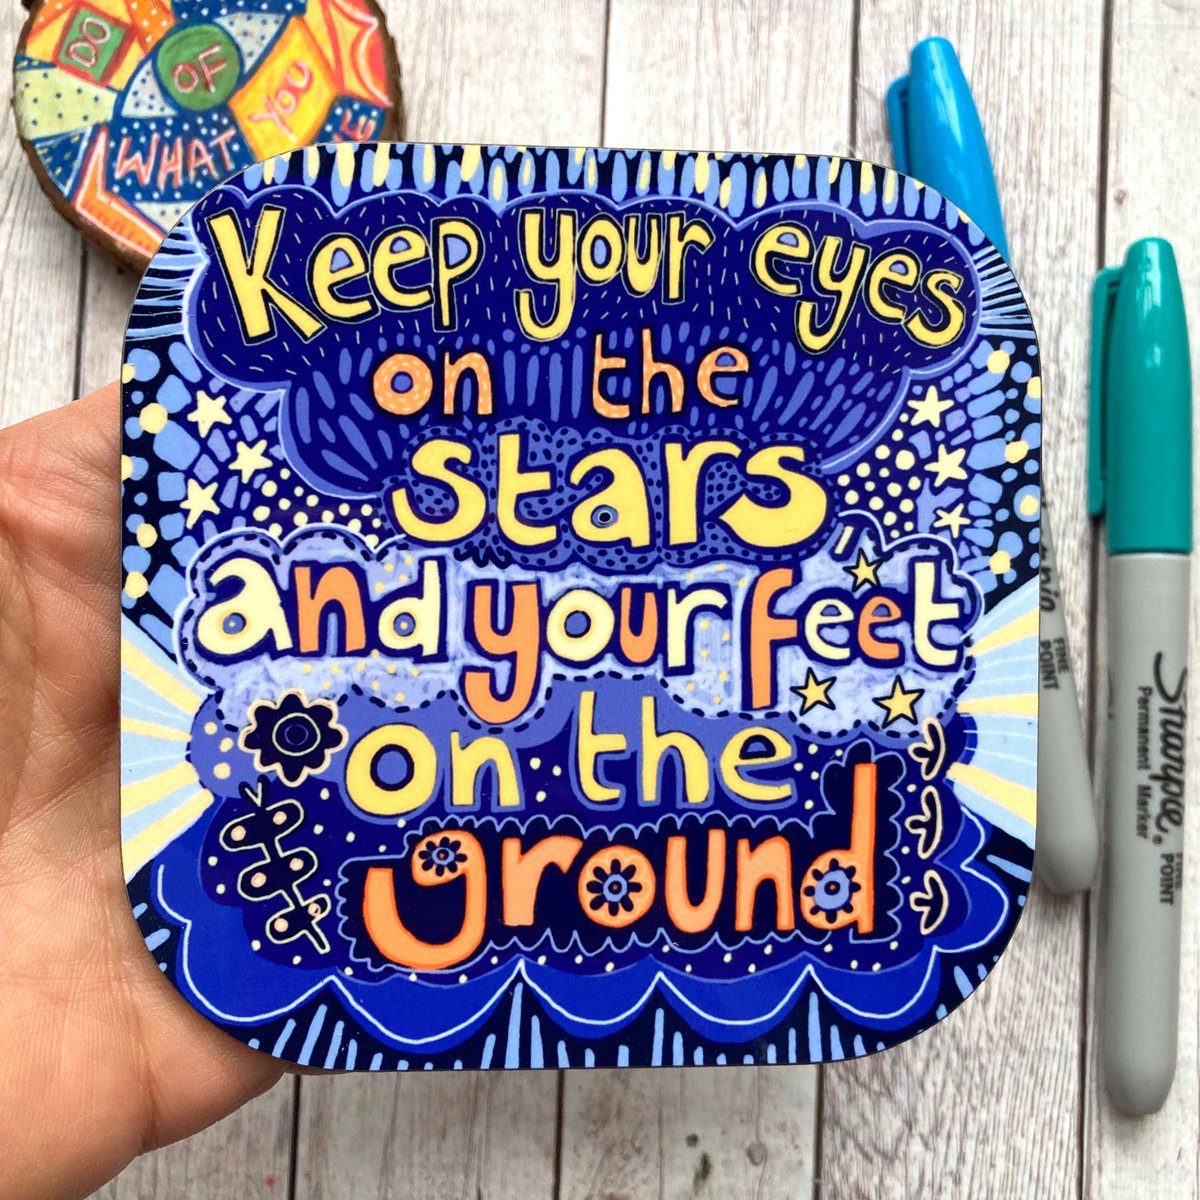 DO
OF
WHAT YOU
Keep your eyes
on the
stars
and your feet
on the
ground
FINE
POINT
Sharpie®
Permanent Marker
FINE
POINT